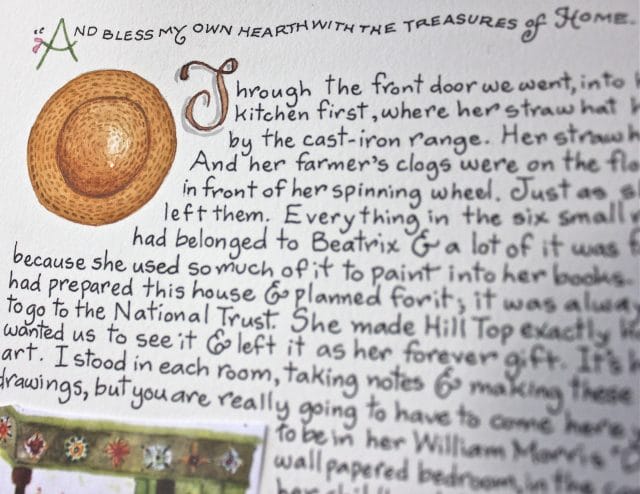 "AND BLESS MY OWN HEARTH WITH THE TREASURES of HOME.
Through the front door we went, into
kitchen first, where her straw hat
by the cast-iron range. Her straw
And her farmer's clogs were on the
in front of her spinning wheel. Just as
left them. Everything in the six small
had belonged to Beatrix & a lot of it was
because she used so much of it to paint into her books.
had prepared this house & planned for it; it was
to go to the National Trust. She made Hill Top exactly
wanted us to see it & left it as her forever gift. It's
art. I stood in each room, taking notes & making these
drawings, but you are really going to have to come here,
to be in her William Morris
wallpapered bedroom, in the